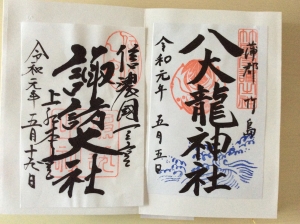 蒲郡竹島
八大龍神社
令和元年 五月五日
信濃國一之宮
諏訪大社
上社本宮
令和元年 五月十九日